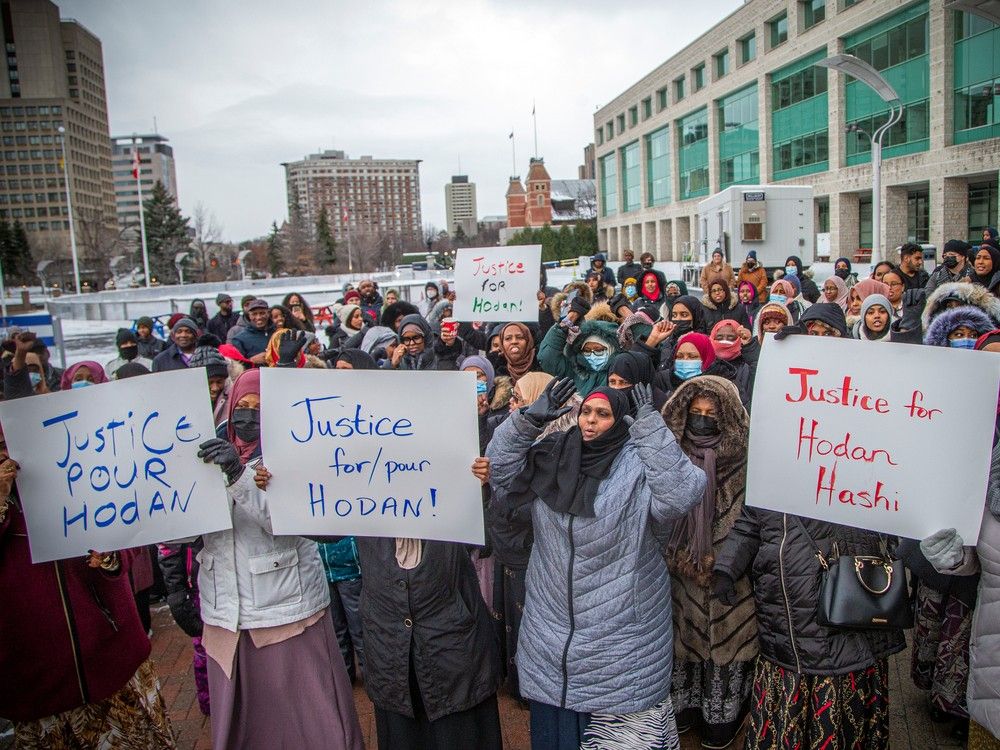 Justice
for
Hodan!
Justice
Pour
Hodan
Justice
for/pour
Hodan!
Justice for
Hodan
Hashi